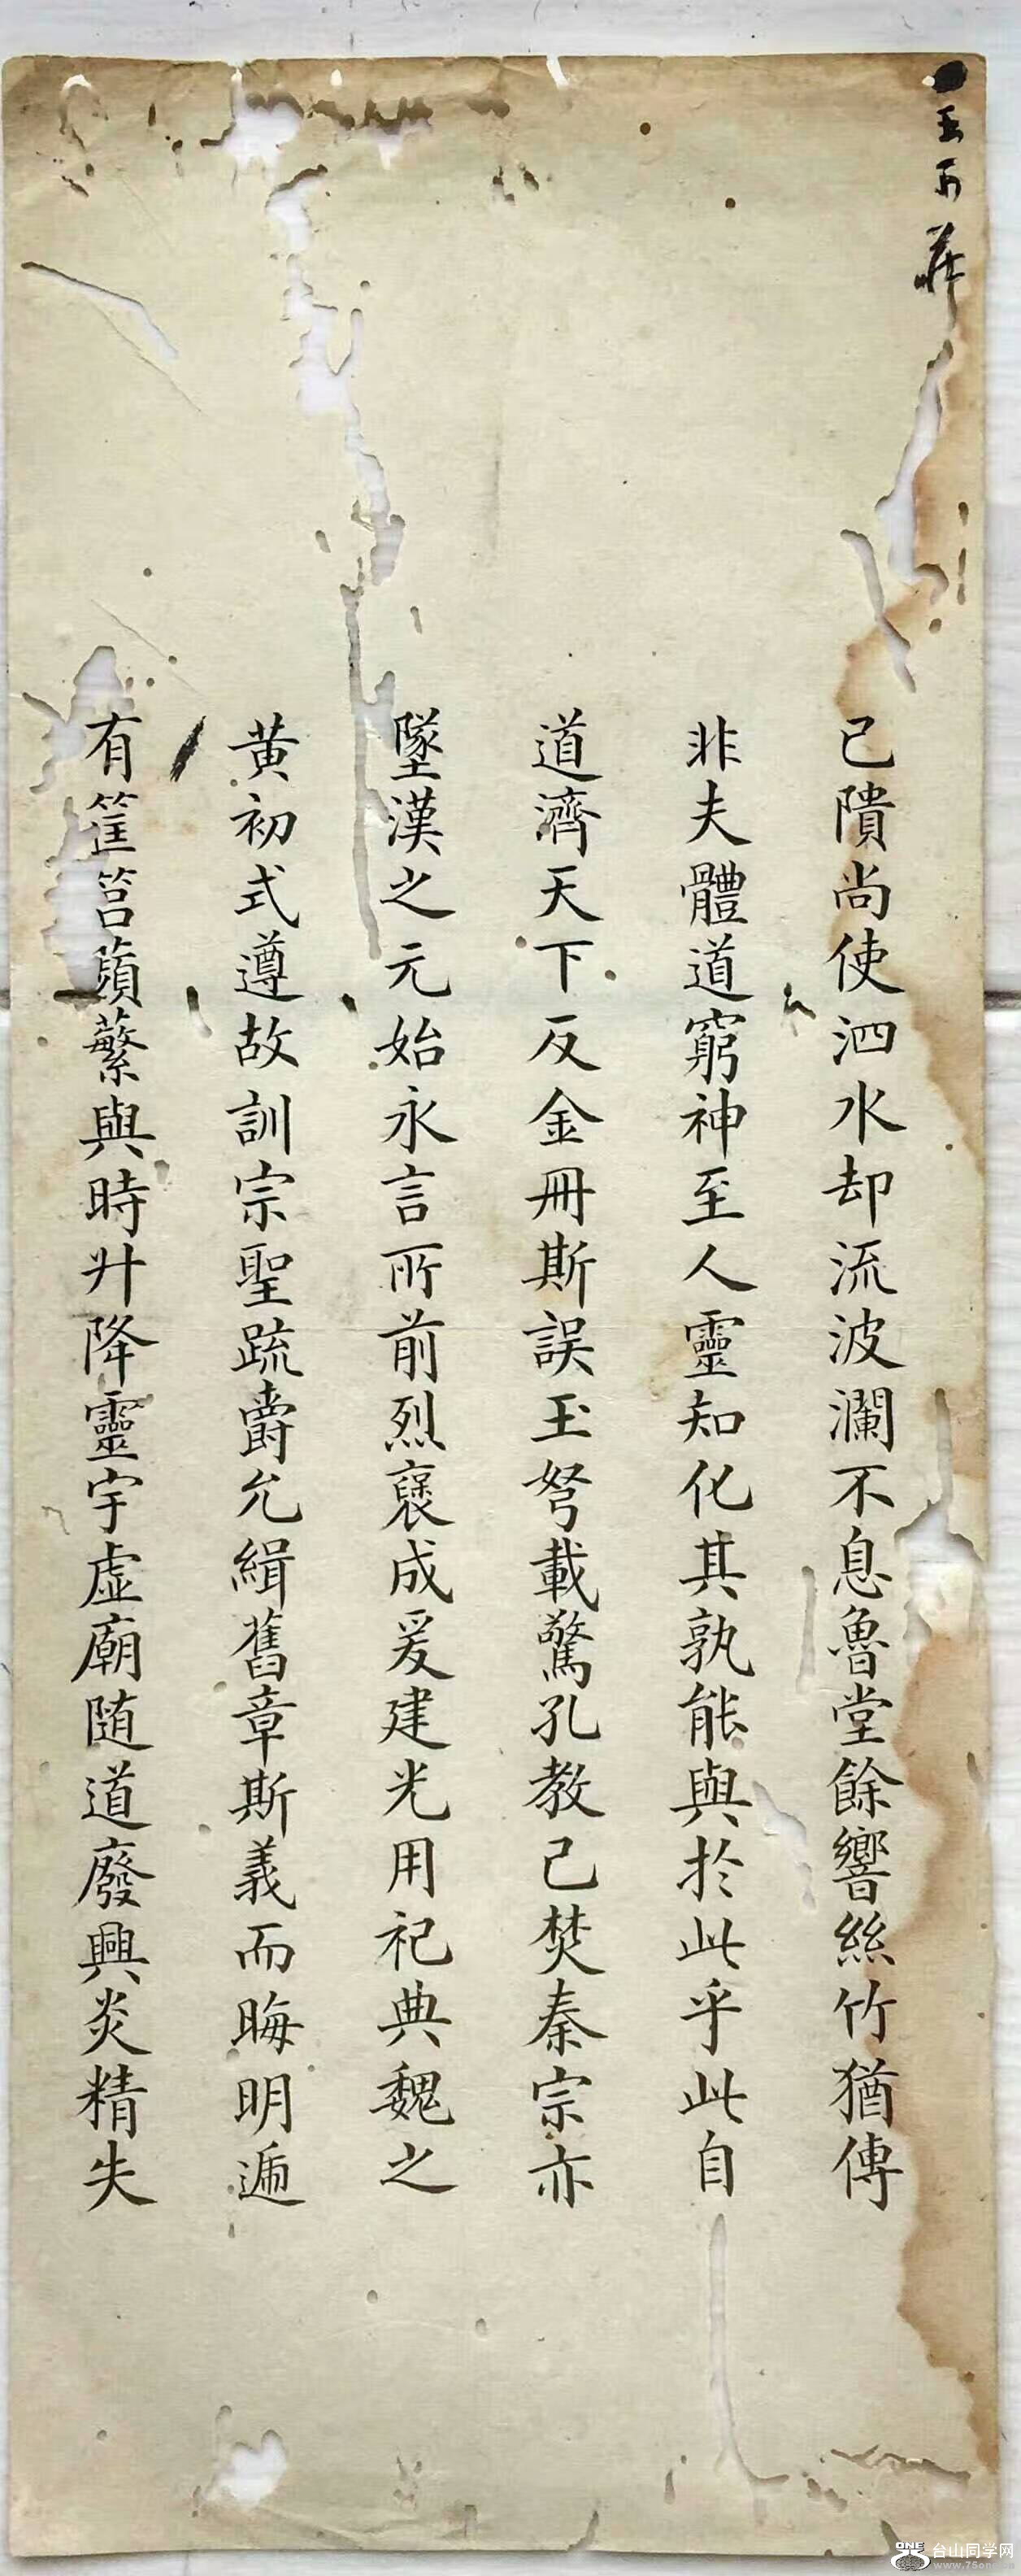 已隤尚使泗水却流波瀾不息魯堂餘響絲竹猶傳
非夫體道窮神至人靈知化其孰能與於此乎此自
道濟天下反金冊斯誤玉弩載驚孔教已焚秦宗亦
墜漢之元始永言所前烈褒成爰建光用祀典魏之
黄初式遵故訓宗聖疏爵允緝舊章斯義而晦明遞
有筐筥蘋蘩與時升降靈宇虛廟随道廢興炎精失
ONE 台山同学网